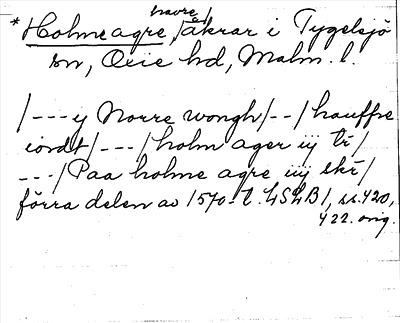 havre/
*Holmeagre, åkrar i Tygelsjö
sn, Oxie hd, Malm. l.
/---y Norre wongh/--/hauffre
iordt/---/holm ager iij tr/
---/Paa holme agre iiij skr/
förra delen av 1570-t. LSLB1, ss. 420,
422. orig.